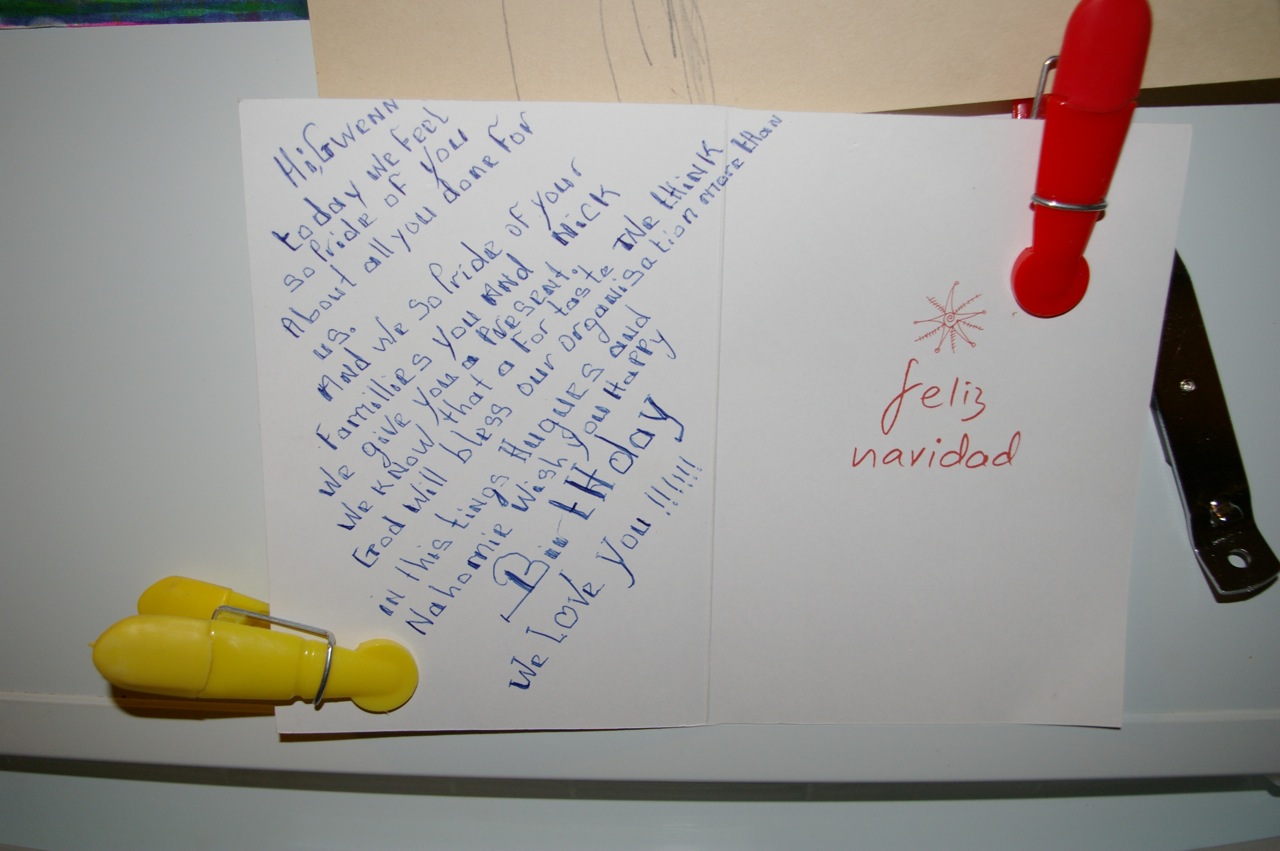 Hi, Gwenn
today we feel
so Pride of you
About all you done for
us.
And we so Pride of your
Famillies you And Nick
We give you a Present.
We know that a For taste We think
God will bless our organisation more than
in this tings Hugues and
Nahomie Wish you Happy
BirtHday
We Love you !!!!!!!
feliz
navidad